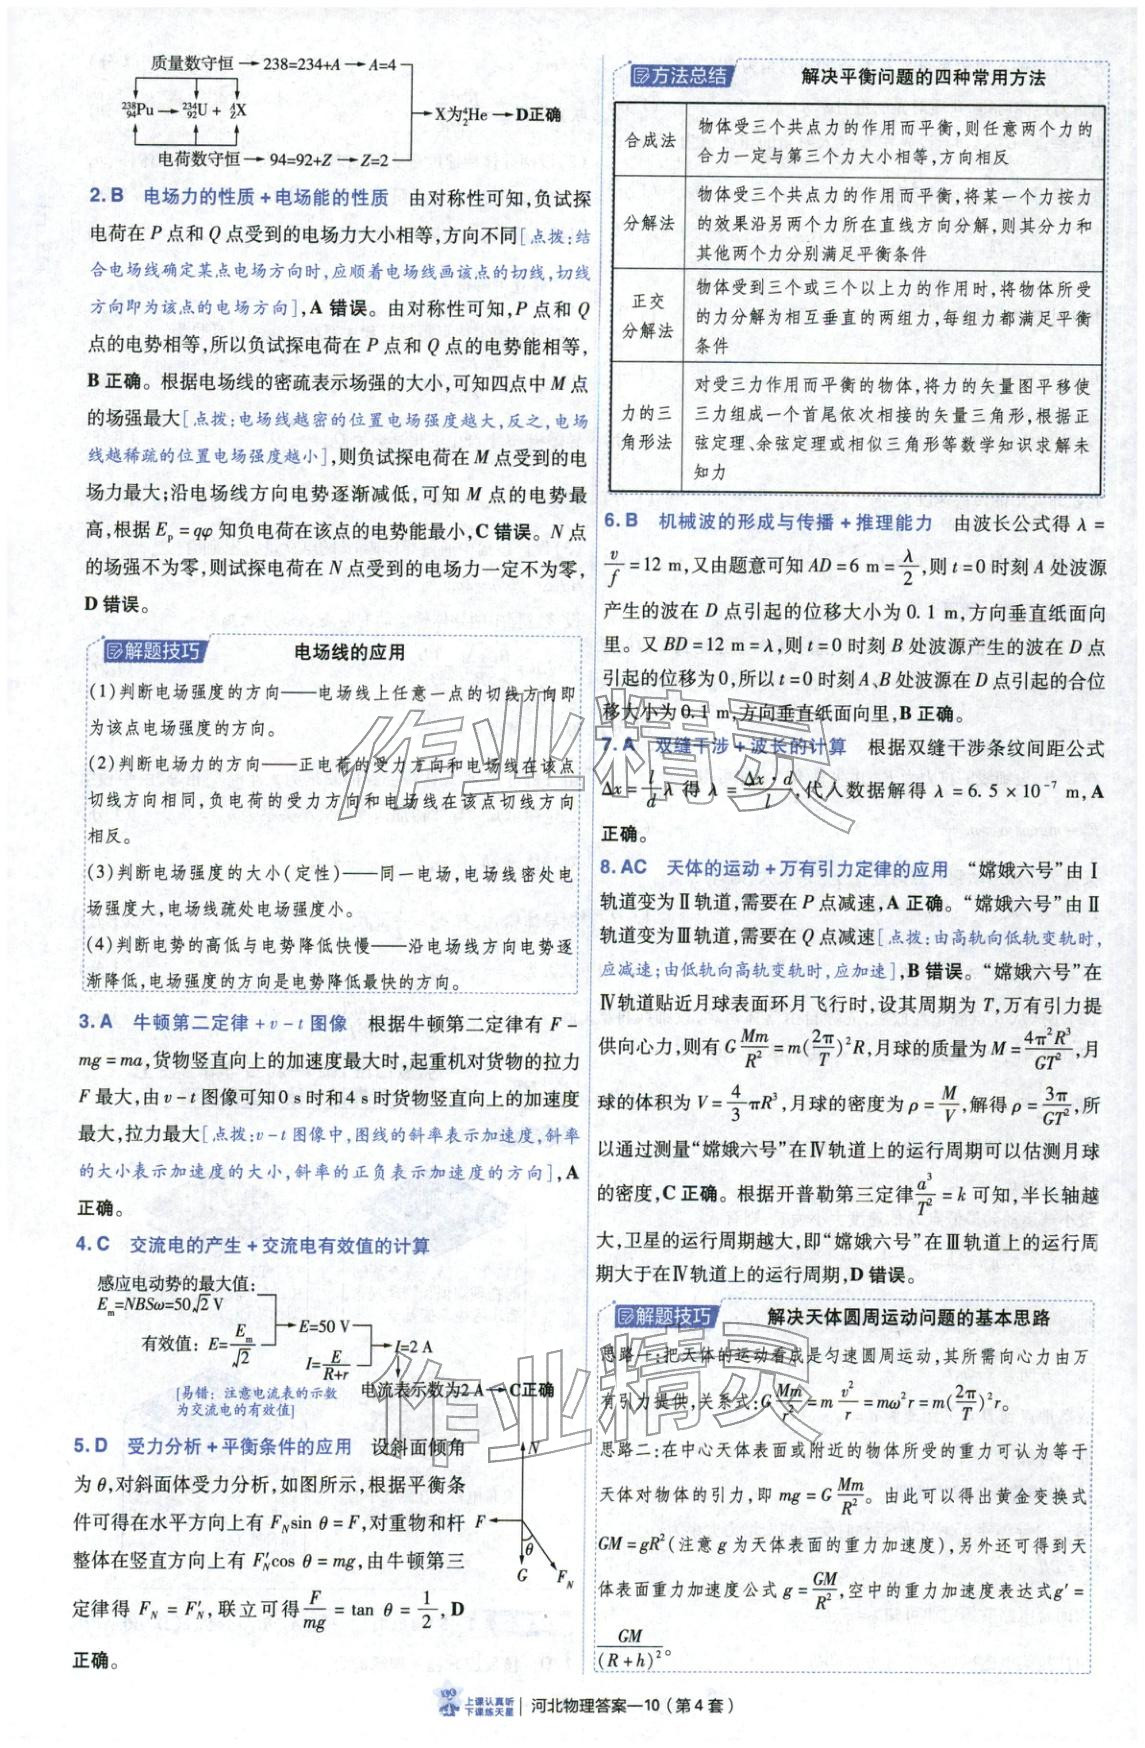 质量数守恒→238=234+A→A=4
²³⁸₉₄Pu→²³⁴₉₂U+⁴₂X
X为⁴₂He→D正确
电荷数守恒→94=92+Z→Z=2
2.B 电场力的性质+电场能的性质 由对称性可知,负试探
电荷在P点和Q点受到的电场力大小相等,方向不同[点拨:结
合电场线确定某点电场方向时,应顺着电场线画该点的切线,切线
方向即为该点的电场方向],A错误。由对称性可知,P点和Q
点的电势相等,所以负试探电荷在P点和Q点的电势能相等,
B正确。根据电场线的密疏表示场强的大小,可知四点中M点
的场强最大[点拨:电场线越密的位置电场强度越大,反之,电场
线越稀疏的位置电场强度越小],则负试探电荷在M点受到的电
场力最大;沿电场线方向电势逐渐减低,可知M点的电势最
高,根据Eₚ=qφ知负电荷在该点的电势能最小,C错误。N点
的场强不为零,则试探电荷在N点受到的电场力一定不为零,
D错误。
解题技巧 电场线的应用
(1)判断电场强度的方向——电场线上任意一点的切线方向即
为该点电场强度的方向。
(2)判断电场力的方向——正电荷的受力方向和电场线在该点
切线方向相同,负电荷的受力方向和电场线在该点切线方向
相反。
(3)判断电场强度的大小(定性)——同一电场,电场线密处电
场强度大,电场线疏处电场强度小。
(4)判断电势的高低与电势降低快慢——沿电场线方向电势逐
渐降低,电场强度的方向是电势降低最快的方向。
3.A 牛顿第二定律+v-t图像 根据牛顿第二定律有F-
mg=ma,货物竖直向上的加速度最大时,起重机对货物的拉力
F最大,由v-t图像可知0 s时和4 s时货物竖直向上的加速度
最大,拉力最大[点拨:v-t图像中,图线的斜率表示加速度,斜率
的大小表示加速度的大小,斜率的正负表示加速度的方向],A
正确。
4.C 交流电的产生+交流电有效值的计算
感应电动势的最大值:
Eₘ=NBSω=50√2 V
有效值:E=Eₘ/√2
→E=50 V
I=E/(R+r)
→I=2 A
[易错:注意电流表的示数
为交流电的有效值]
电流表示数为2 A→C正确
5.D 受力分析+平衡条件的应用 设斜面倾角
为θ,对斜面体受力分析,如图所示,根据平衡条
件可得在水平方向上有F_N sin θ=F,对重物和杆
整体在竖直方向上有F'_N cos θ=mg,由牛顿第三
定律得F_N=F'_N,联立可得F/mg=tan θ=1/2,D
正确。
N
F
θ
G
F_N
方法总结 解决平衡问题的四种常用方法
合成法 物体受三个共点力的作用而平衡,则任意两个力的
合力一定与第三个力大小相等,方向相反
分解法 物体受三个共点力的作用而平衡,将某一个力按力
的效果沿另两个力所在直线方向分解,则其分力和
其他两个力分别满足平衡条件
正交分解法 物体受到三个或三个以上力的作用时,将物体所受
的力分解为相互垂直的两组力,每组力都满足平衡
条件
力的三角形法 对受三力作用而平衡的物体,将力的矢量图平移使
三力组成一个首尾依次相接的矢量三角形,根据正
弦定理、余弦定理或相似三角形等数学知识求解未
知力
6.B 机械波的形成与传播+推理能力 由波长公式得λ=
v/f=12 m,又由题意可知AD=6 m=λ/2,则t=0时刻A处波源
产生的波在D点引起的位移大小为0.1 m,方向垂直纸面向
里。又BD=12 m=λ,则t=0时刻B处波源产生的波在D点
引起的位移为0,所以t=0时刻A、B处波源在D点引起的合位
移大小为0.1 m,方向垂直纸面向里,B正确。
7.A 双缝干涉+波长的计算 根据双缝干涉条纹间距公式
Δx=(l/d)λ得λ=Δx·d/l,代入数据解得λ=6.5×10⁻⁷ m,A
正确。
8.AC 天体的运动+万有引力定律的应用 “嫦娥六号”由Ⅰ
轨道变为Ⅱ轨道,需要在P点减速,A正确。“嫦娥六号”由Ⅱ
轨道变为Ⅲ轨道,需要在Q点减速[点拨:由高轨向低轨变轨时,
应减速;由低轨向高轨变轨时,应加速],B错误。“嫦娥六号”在
Ⅳ轨道贴近月球表面环月飞行时,设其周期为T,万有引力提
供向心力,则有G Mm/R²=m(2π/T)²R,月球的质量为M=4π²R³/GT²,月
球的体积为V=4/3 πR³,月球的密度为ρ=M/V,解得ρ=3π/GT²,所
以通过测量“嫦娥六号”在Ⅳ轨道上的运行周期可以估测月球
的密度,C正确。根据开普勒第三定律a³/T²=k可知,半长轴越
大,卫星的运行周期越大,即“嫦娥六号”在Ⅲ轨道上的运行周
期大于在Ⅳ轨道上的运行周期,D错误。
解题技巧 解决天体圆周运动问题的基本思路
思路一:把天体的运动看成是匀速圆周运动,其所需向心力由万
有引力提供,关系式:G Mm/r²=m v²/r=mω²r=m(2π/T)²r。
思路二:在中心天体表面或附近的物体所受的重力可认为等于
天体对物体的引力,即mg=G Mm/R²。由此可以得出黄金变换式
GM=gR²(注意g为天体表面的重力加速度),另外还可得到天
体表面重力加速度公式g=GM/R²,空中的重力加速度表达式g'=
GM/(R+h)²。
作业精灵
作业精灵
上课认真听
下课练天星
河北物理答案—10(第4套)